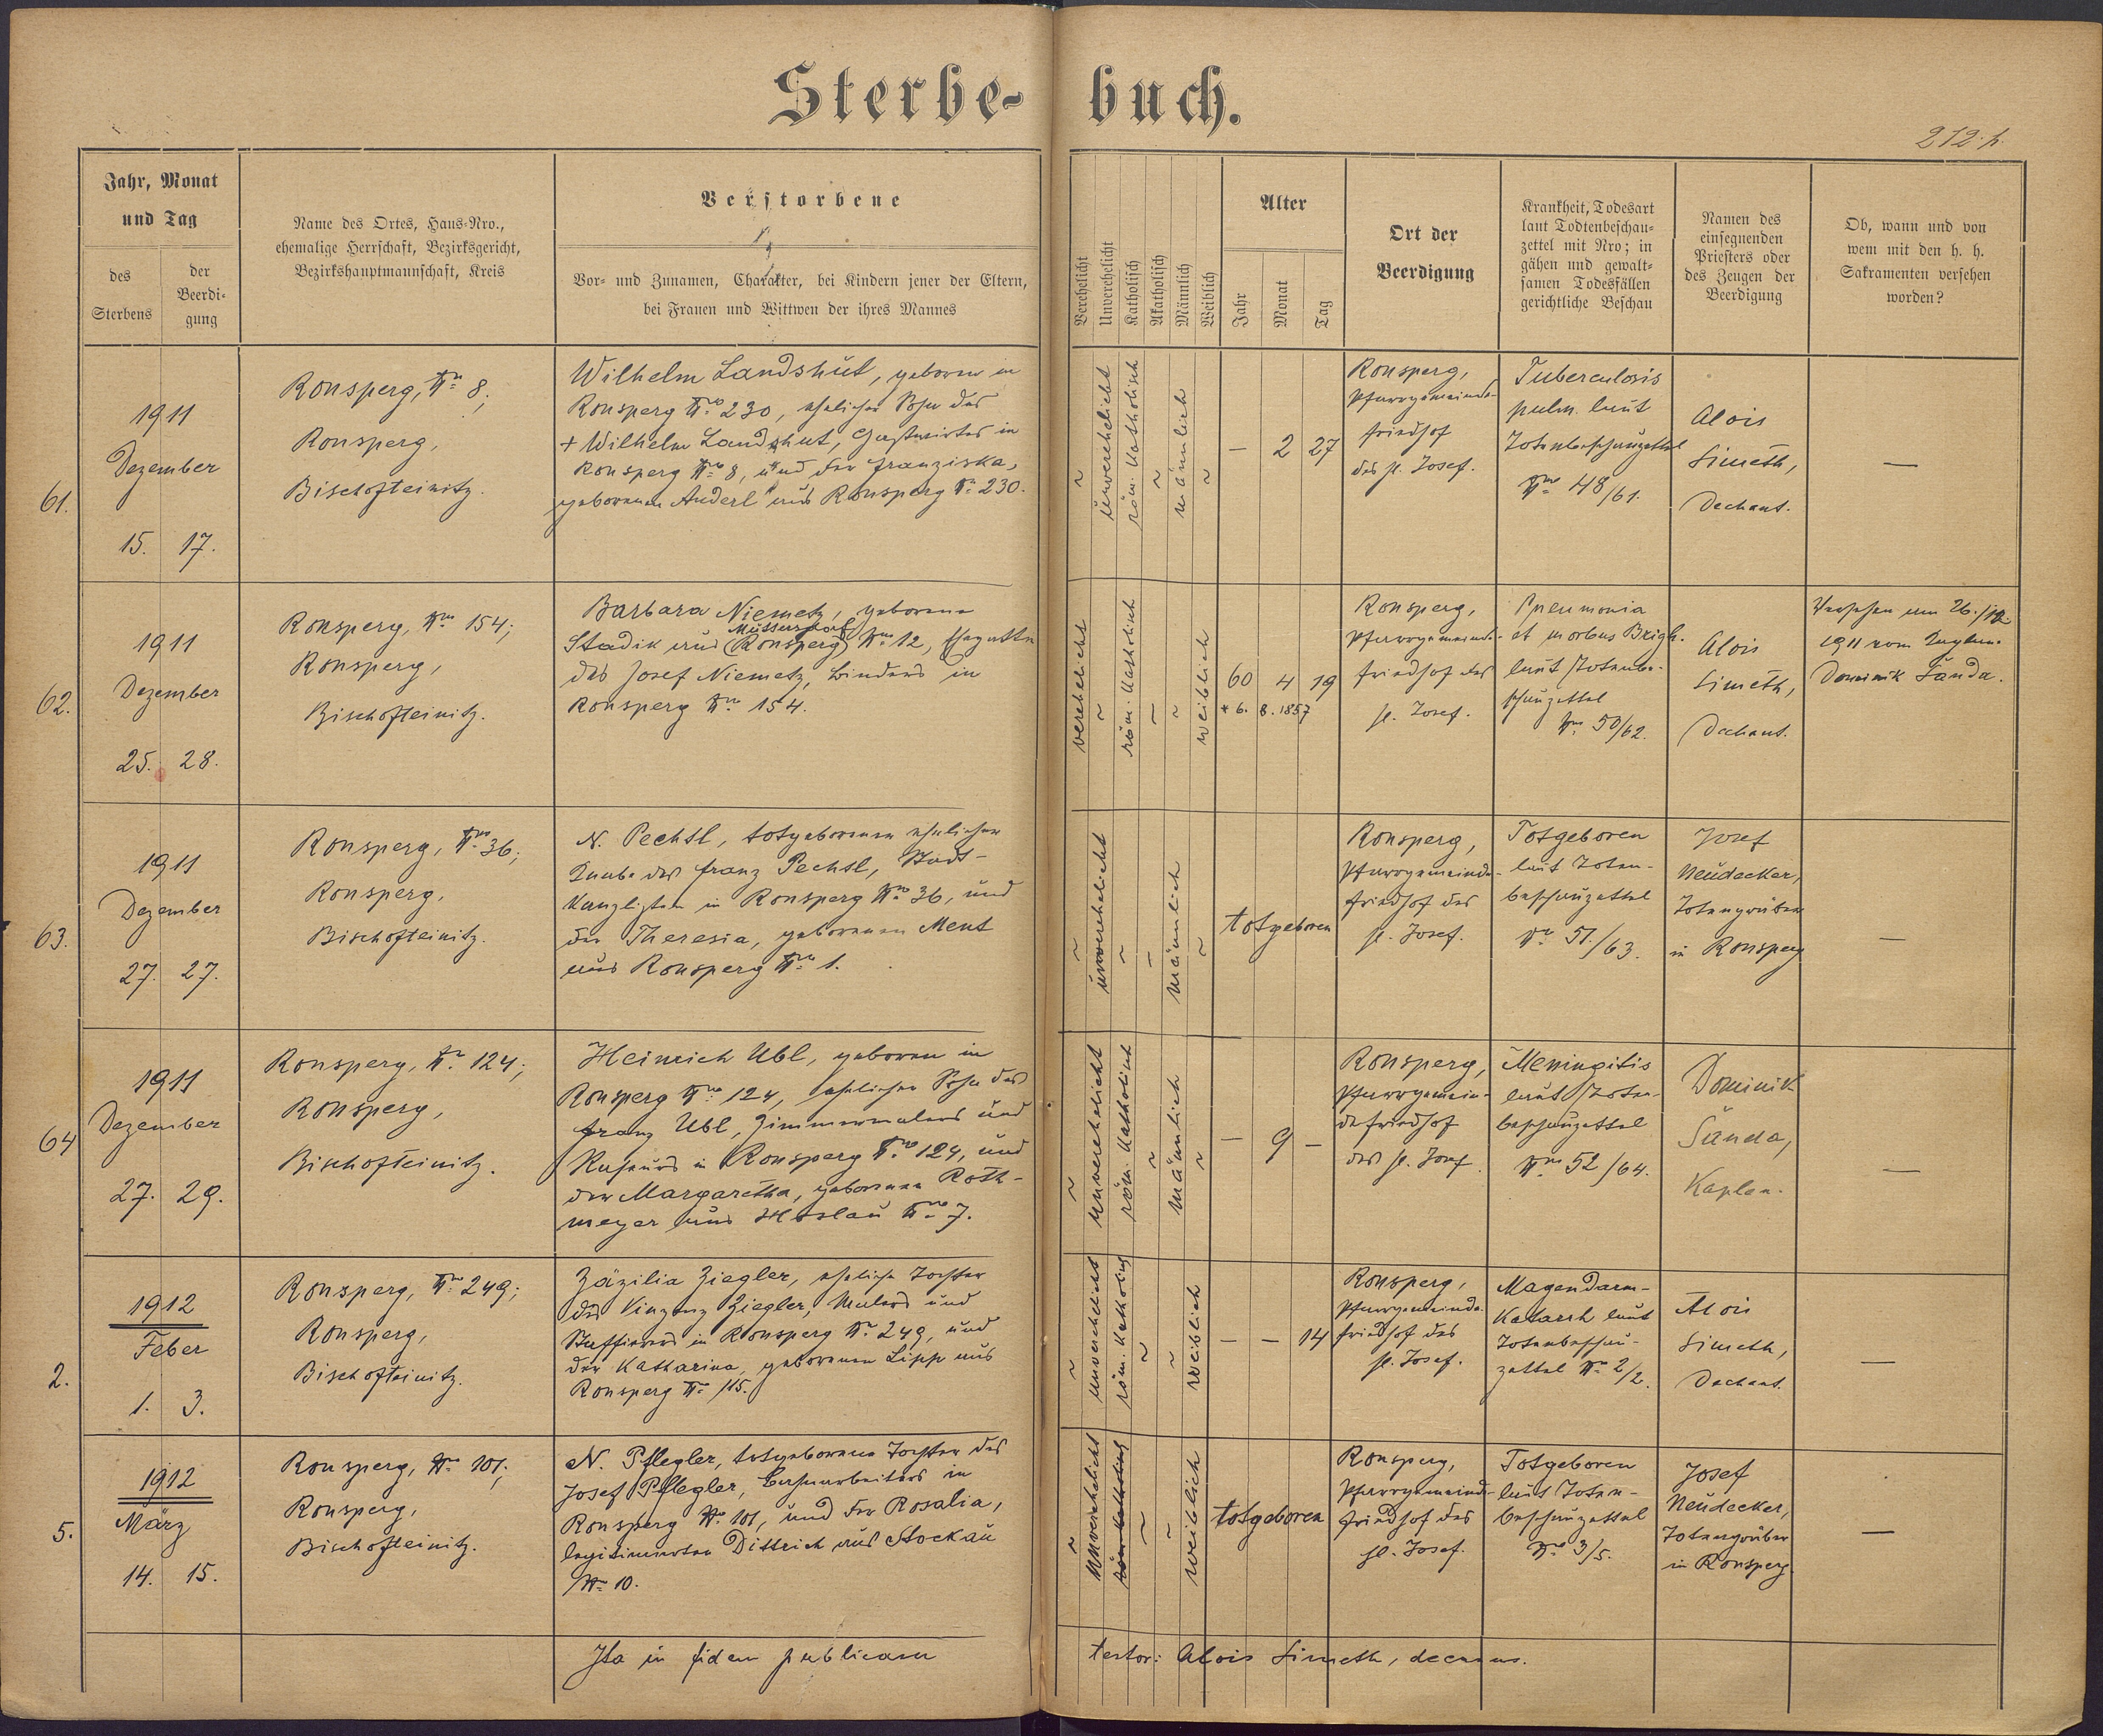 Sterbe-buch.
212.
Jahr, Monat
und Tag
des
Sterbens
der
Beerdi-
gung
Name des Ortes, Haus-Nro.,
ehemalige Herrschaft, Bezirksgericht,
Bezirkshauptmannschaft, Kreis
Verstorbene
Vor- und Zunamen, Charakter, bei Kindern jener der Eltern,
bei Frauen und Wittwen der ihres Mannes
Verehelicht
Unverehelicht
Katholisch
Akatholisch
Männlich
Weiblich
Alter
Jahr
Monat
Tag
Ort der
Beerdigung
Krankheit, Todesart
laut Todtenbeschau-
zettel mit Nro; in
gähen und gewalt-
samen Todesfällen
gerichtliche Beschau
Namen des
einsegnenden
Priesters oder
des Zeugen der
Beerdigung
Ob, wann und von
wem mit den h. h.
Sakramenten versehen
worden?
61.
1911
Dezember
15. 17.
Ronsperg, Nro 8;
Ronsperg,
Bischofteinitz.
Wilhelm Landshut, geboren in
Ronsperg Nro 230, ehelicher Sohn des
+ Wilhelm Landshut, Gastwirtes in
Ronsperg Nro 8, und der Franziska,
geborenen Anderl aus Ronsperg Nr. 230.
~
unverehelicht
röm. katholisch
~
männlich
~
— 2 27
Ronsperg,
Pfarrgemeinde-
friedhof
des hl. Josef.
Tuberculosis
pulm. laut
Totenbeschauzettel
Nro 48/61.
Alois
Simeth,
Dechant.
—
62.
1911
Dezember
25. 28.
Ronsperg, Nro 154;
Ronsperg,
Bischofteinitz.
Barbara Niemetz, geborene
Stadik aus (Ronsperg) Nro 12, Ehegattin
des Josef Niemetz, Binders in
Ronsperg Nro 154.
verehelicht
~
röm. katholisch
~
~
weiblich
60 4 19
* 6. 8. 1857
Ronsperg,
Pfarrgemeinde-
friedhof des
hl. Josef.
Pneumonia
et morbus Brigh.
laut Totenbe-
schauzettel
Nro 50/62.
Alois
Simeth,
Dechant.
Versehen am 26./12.
1911 vom Kaplan
Dominik Šanda.
63.
1911
Dezember
27. 27.
Ronsperg, Nro 36;
Ronsperg,
Bischofteinitz.
N. Pechtl, totgeborener ehelicher
Knabe des Franz Pechtl, Stadt-
kanzlisten in Ronsperg Nro 36, und
der Theresia, geborenen Ment
aus Ronsperg Nro 1.
~
unverehelicht
~
~
männlich
~
totgeboren
Ronsperg,
Pfarrgemeinde-
friedhof des
hl. Josef.
Totgeboren
laut Toten-
beschauzettel
Nro 51/63.
Josef
Neudecker,
Totengräber
in Ronsperg
—
64
1911
Dezember
27. 29.
Ronsperg, Nro 124;
Ronsperg,
Bischofteinitz.
Heinrich Ubl, geboren in
Ronsperg Nro 124, ehelicher Sohn des
Franz Ubl, Zimmermalers und
Raseurs in Ronsperg Nro 124, und
der Margaretha, geborenen Roth-
meyer aus Hoslau Nro 7.
~
unverehelicht
röm. katholisch
~
männlich
~
— 9 —
Ronsperg,
Pfarrgemein-
defriedhof
des hl. Josef.
Meningitis
laut Toten-
beschauzettel
Nro 52/64.
Dominik
Šanda,
Kaplan.
—
2.
1912
Feber
1. 3.
Ronsperg, Nro 249;
Ronsperg,
Bischofteinitz.
Zäzilia Ziegler, eheliche Tochter
des Vinzenz Ziegler, Malers und
Staffierers in Ronsperg Nr. 249, und
der Katharina, geborenen Lipp aus
Ronsperg Nro 115.
~
unverehelicht
röm. katholisch
~
~
weiblich
— — 14
Ronsperg,
Pfarrgemeinde-
friedhof des
hl. Josef.
Magendarm-
Katarrh laut
Totenbeschau-
zettel Nro 2/2.
Alois
Simeth,
Dechant.
—
5.
1912
März
14. 15.
Ronsperg, Nro 101;
Ronsperg,
Bischofteinitz.
N. Pflegler, totgeborene Tochter des
Josef Pflegler, Bahnarbeiters in
Ronsperg Nro 101, und der Rosalia,
legitimierten Dittrich aus Stockau
Nro 10.
~
unverehelicht
röm. katholisch
~
~
weiblich
totgeboren
Ronsperg,
Pfarrgemeinde-
friedhof des
hl. Josef.
Totgeboren
laut Toten-
beschauzettel
Nro 3/5.
Josef
Neudecker,
Totengräber
in Ronsperg.
—
Ita in fidem publicam testor: Alois Simeth, decanus.